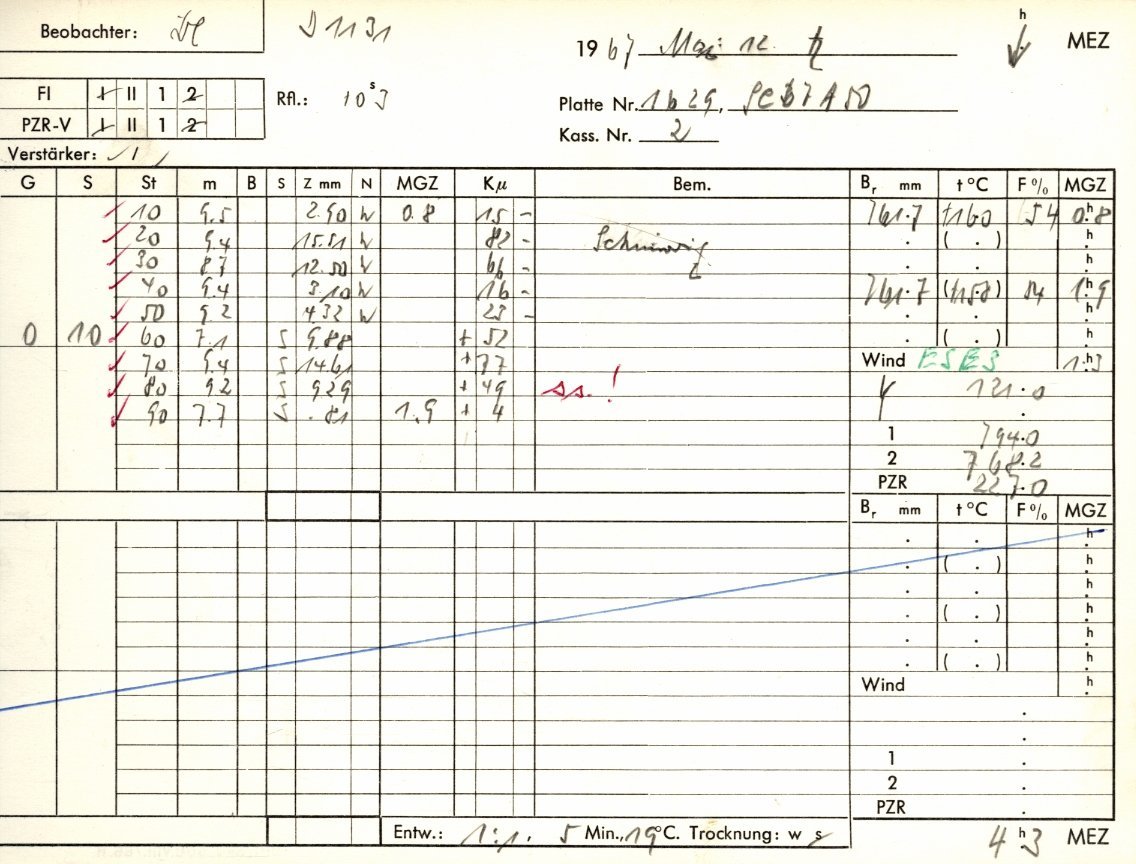 Beobachter:
D 1131
1967 Mai 12.
h MEZ
FI I II 1 2
Rfl.: 10 s 3
Platte Nr. 1629,
PZR-V I II 1 2
Kass. Nr. 2
Verstärker: 1
G S St m B S Z mm N MGZ Kμ Bem. Br mm t °C F % MGZ
10 9.5 2.90 N 0.8 15 - 761.7 +16.0 54 0.h8
20 9.4 15.51 N 82 - ( . ) h
30 8.7 12.50 N 66 -
40 9.4 3.10 N 16 - 761.7 (+15.8) 54 1.h9
50 9.2 4.32 N 23 - h
0 10 60 7.1 S 9.88 + 52 ( . ) h
70 9.4 S 14.61 + 77 Wind ESES 1.h3
80 9.2 S 9.29 + 49 ss.! 121.0
90 7.7 S .81 1.9 + 4
1 794.0
2 768.2
PZR 227.0
Br mm t °C F % MGZ
. . h
. ( . ) h
. . h
. ( . ) h
. . h
. ( . ) h
Wind h
.
.
1 .
2 .
PZR .
Entw.: 1:1. 5 Min., 19°C. Trocknung: w s
4 h 3 MEZ